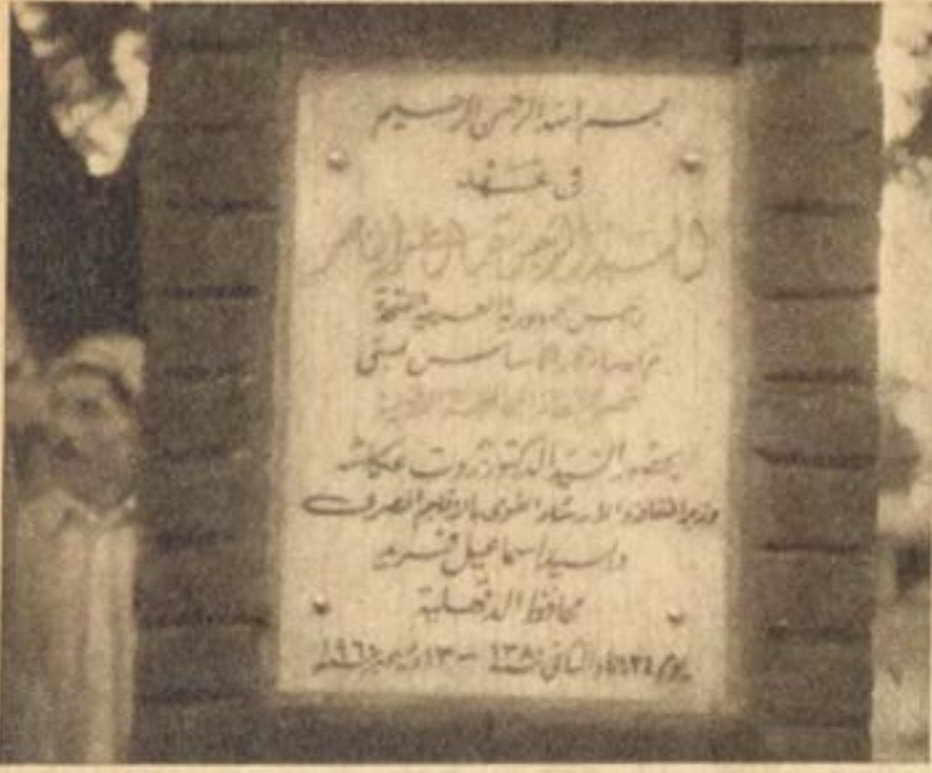 بسم الله الرحمن الرحيم
في عهد
السيد الرئيس جمال عبد الناصر
رئيس الجمهورية العربية المتحدة
تم إرساء حجر الأساس لمبنى
قصر الثقافة
بحضور السيد الدكتور ثروت عكاشه
وزير الثقافة والارشاد القومى بالاقليم المصرى
والسيد اسماعيل فريد
محافظ الدقهلية
الثانى ١٣٨٠ - ١٣ ديسمبر ١٩٦٠